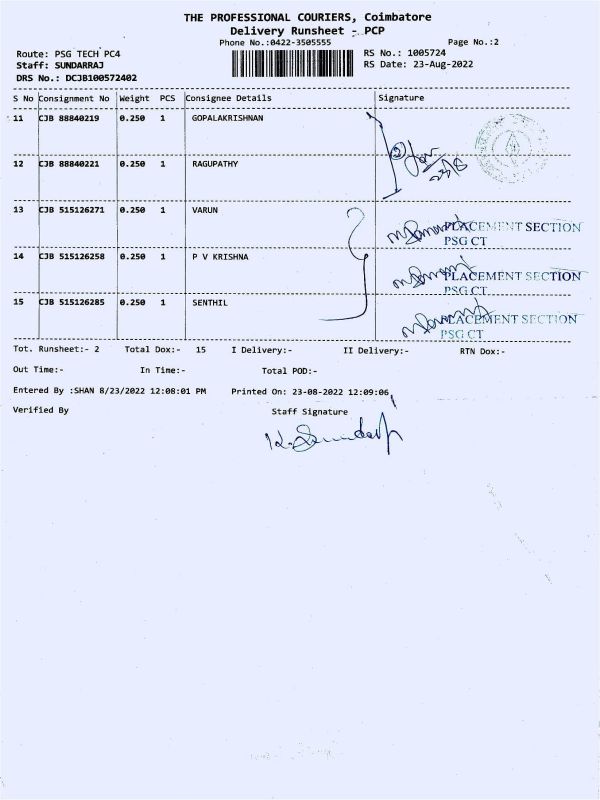 THE PROFESSIONAL COURIERS, Coimbatore
Delivery Runsheet - PCP
Phone No.:0422-3505555 Page No.:2
Route: PSG TECH PC4 RS No.: 1005724
Staff: SUNDARRAJ RS Date: 23-Aug-2022
DRS No.: DCJB100572402
S No Consignment No Weight PCS Consignee Details Signature
11 CJB 88840219 0.250 1 GOPALAKRISHNAN
12 CJB 88840221 0.250 1 RAGUPATHY
13 CJB 515126271 0.250 1 VARUN
PLACEMENT SECTION
PSG CT
14 CJB 515126258 0.250 1 P V KRISHNA
PLACEMENT SECTION
PSG CT
15 CJB 515126285 0.250 1 SENTHIL
PLACEMENT SECTION
PSG CT
Tot. Runsheet:- 2 Total Dox:- 15 I Delivery:- II Delivery:- RTN Dox:-
Out Time:- In Time:- Total POD:-
Entered By :SHAN 8/23/2022 12:08:01 PM Printed On: 23-08-2022 12:09:06
Verified By Staff Signature